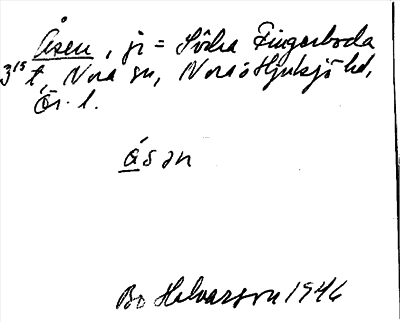 Åsen, ji = Södra Fingerboda
3¹⁵ t, Nora sn, Nora o Hjulsjö hd,
Ör. l.
åsən
Bo Halvarson 1946